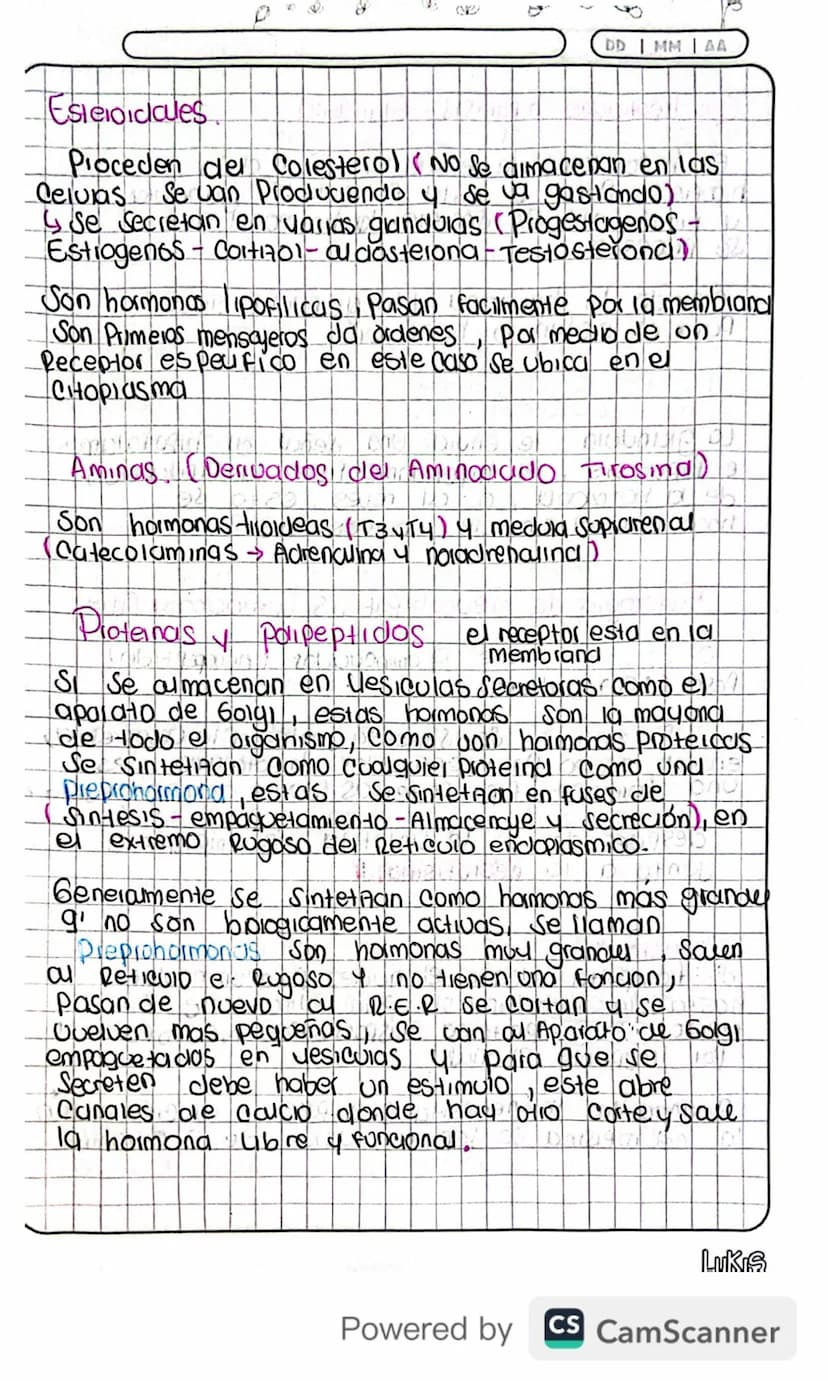 DD | MM | AA
Esteroidales.
Proceden del Colesterol (No se almacenan en las
Celulas se van Produciendo y se va gastando)
↳ se secretan en varias glandulas (Progestagenos -
Estrogenos - Cortizol - aldosterona - Testosterona)
Son hormonas lipofilicas, Pasan facilmente por la membrana
Son Primeros mensajeros da ordenes, por medio de un
Receptor especifico en este caso se ubica en el
citoplasma
Aminas. (Derivados del Aminoacido Tirosina)
Son hormonas tiroideas (T3 y T4) y medula suprarenal
(Catecolaminas → Adrenalina y noradrenalina)
Proteinas y polipeptidos el receptor esta en la
membrana
Si se almacenan en vesiculas secretoras como el
aparato de Golgi, estas hormonas son la mayoria
de todo el organismo, como son hormonas proteicas
se sintetizan como cualquier proteina como una
preprohormona, estas se sintetizan en fases de
(sintesis - empaquetamiento - Almacenaje y secreción), en
el extremo Rugoso del Reticulo endoplasmico.
Generalmente se sintetizan como hormonas más grandes
q' no son biologicamente activas, se llaman
Preprohormonas son hormonas muy grandes, salen
al Reticulo e. Rugoso y no tienen una funcion,
pasan de nuevo al R.E.R se cortan y se
vuelven mas pequeñas, se van al Aparato de Golgi
empaquetados en vesiculas y para que se
secreten debe haber un estimulo, este abre
Canales de calcio donde hay otro corte y sale
la hormona libre y funcional.
LuKas
Powered by CS CamScanner